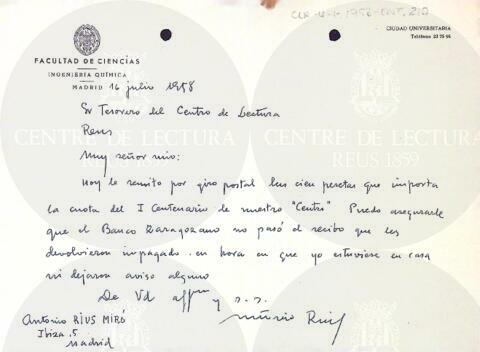 CLR-U-1-1958-ENT, 210
CIUDAD UNIVERSITARIA
Teléfono 23 75 95
FACULTAD DE CIENCIAS
INGENIERÍA QUÍMICA
MADRID 16 julio 1958
Sr Tesorero del Centro de Lectura
Reus
CENTRE DE LECTURA
REUS 1859
CENTRE DE LECTURA
REUS 1859
Muy señor mio:
Hoy le remito por giro postal las cien pesetas que importa
la cuota del I Centenario de nuestro "Centre" Puedo asegurarle
que el Banco Zaragozano no pasó el recibo que les
devolvieron impagado en hora en que yo estuviese en casa
ni dejaron aviso alguno
De Vd affmo y s.s.
Antonio Rius
Antonio RIUS MIRÓ
Ibiza, 5
Madrid